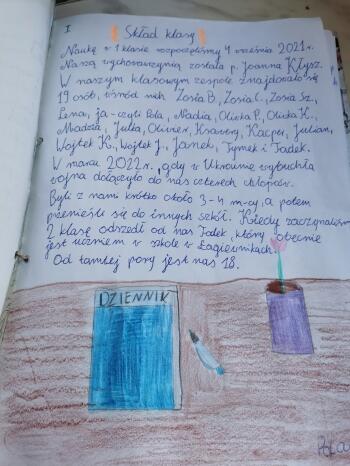 I.
Skład klasy
Naukę w 1 klasie rozpoczęliśmy 4 września 2021r.
Naszą wychowawczynią została p. Joanna Kłysz.
W naszym klasowym zespole znajdowało się
19 osób, wśród nich Zosia B., Zosia C., Zosia Sz.,
Lena, ja - czyli Pola, Nadia, Oliwka P., Oliwka K.,
Madzia, Julia, Olivier, Ksawery, Kacper, Julian,
Wojtek K., Wojtek J., Janek, Tymek i Tadek.
W marcu 2022r., gdy w Ukrainie wybuchła
wojna dołączyło do nas czterech chłopców.
Byli z nami krótko około 3-4 m-cy, a potem
przenieśli się do innych szkół. Kiedy zaczynaliśmy
2 klasę odszedł od nas Tadek, który obecnie
jest uczniem w szkole w Łagiewnikach.
Od tamtej pory jest nas 18.
DZIENNIK
Pola